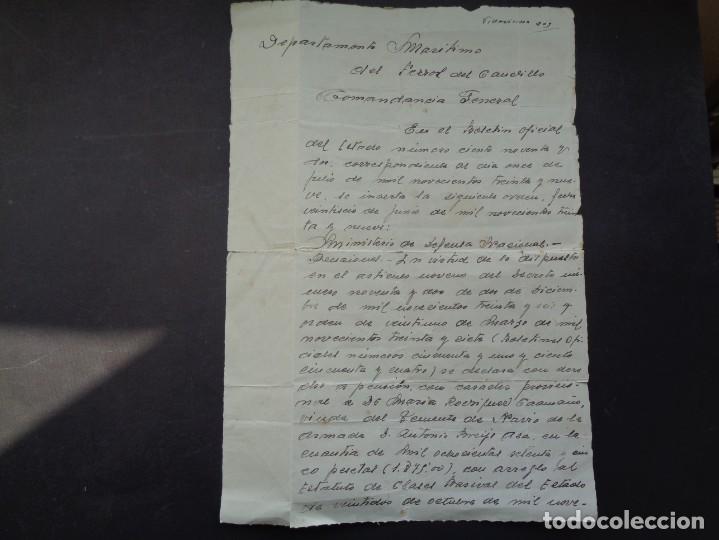 Departamento Maritimo
del Ferrol del Caudillo
Comandancia General
En el Boletin oficial
del Estado número ciento noventa y
correspondiente al dia once de
julio de mil novecientos treinta y nue-
ve, se inserta la siguiente orden, fecha
de junio de mil novecientos trein-
ta y nueve:
Ministerio de Defensa Nacional.-
Pensiones.- En virtud de lo dispuesto
en el articulo noveno del Decreto nú-
mero noventa y dos de dos de diciem-
bre de mil novecientos treinta y seis y
orden de veintiuno de Marzo de mil
novecientos treinta y siete (Boletines Ofi-
ciales números cincuenta y uno y ciento
cincuenta y cuatro) se declara con dere-
cho a pensión, con carácter provisio-
nal a Dª Maria Rodriguez Caamaño,
viuda del Teniente de Navio de la
Armada D. Antonio en la
cuantia de Mil ochocientas setenta y cin-
co pesetas (1.875,00), con arreglo al
Estatuto de Clases Pasivas del Estado
veintidos de octubre de mil nove-
todocoleccion